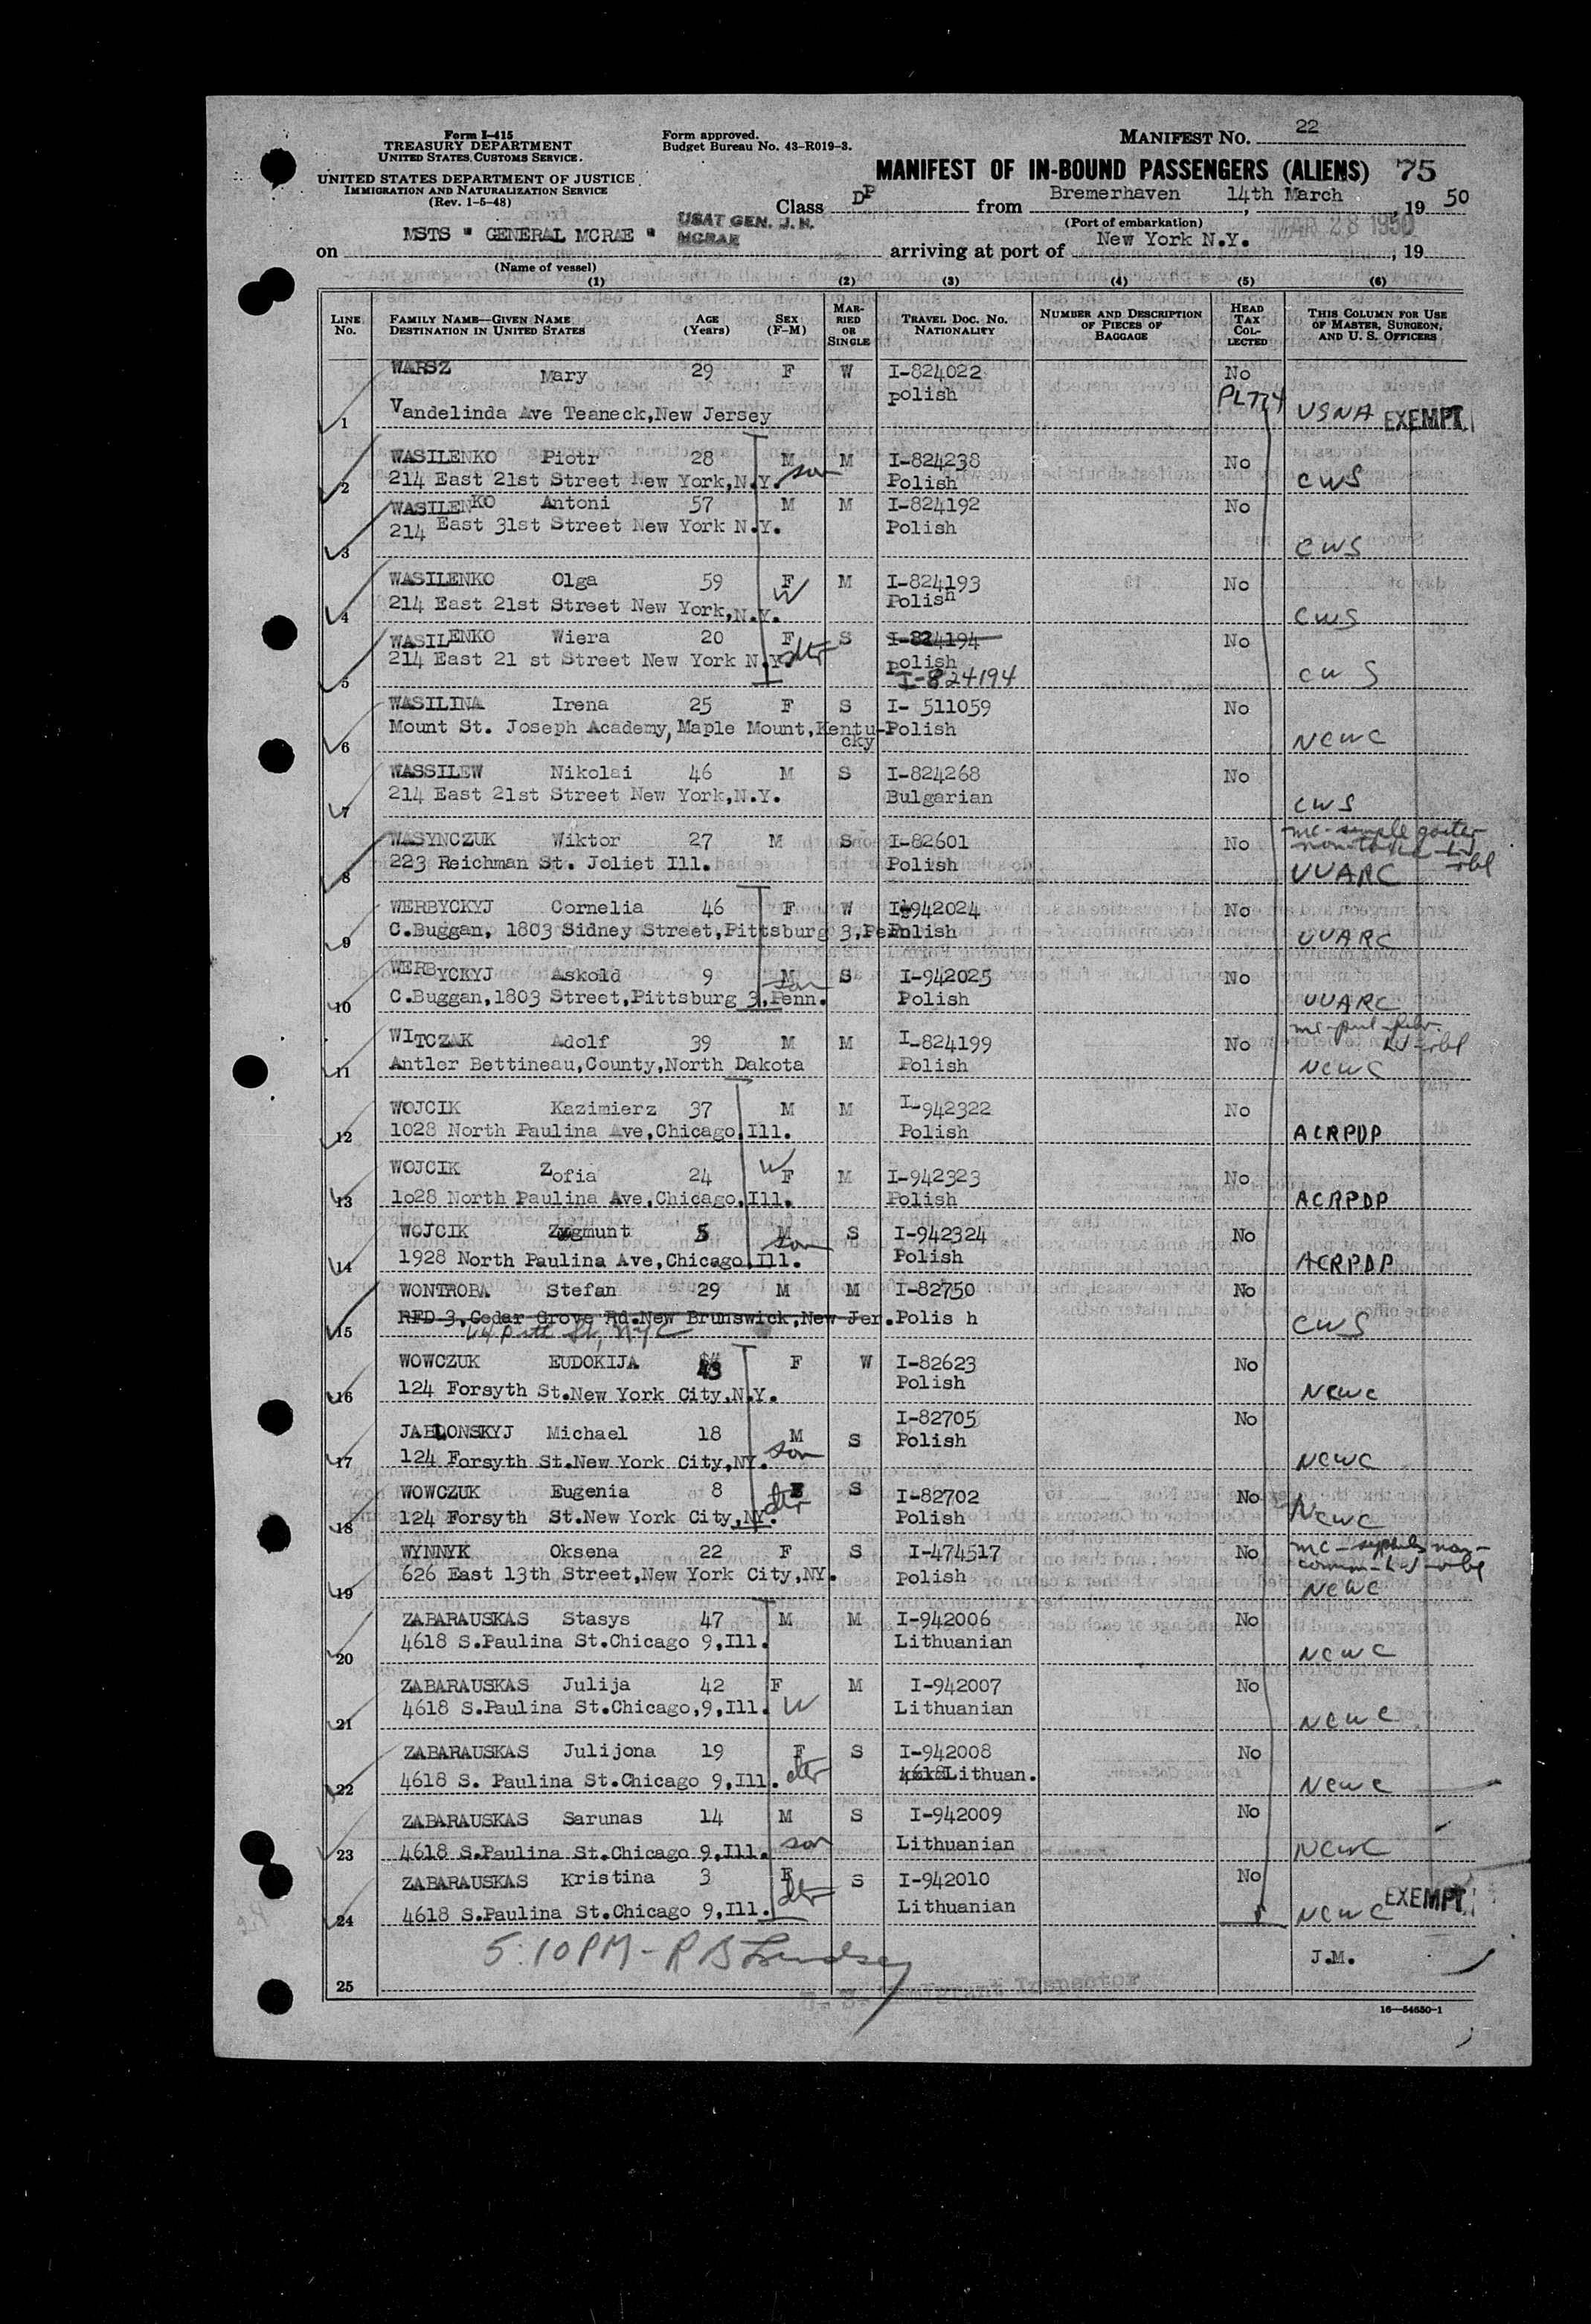 Form I-415
TREASURY DEPARTMENT
UNITED STATES CUSTOMS SERVICE.
UNITED STATES DEPARTMENT OF JUSTICE
IMMIGRATION AND NATURALIZATION SERVICE
(Rev. 1-5-48)
Form approved.
Budget Bureau No. 43-R019-3.
MANIFEST NO. 22
MANIFEST OF IN-BOUND PASSENGERS (ALIENS) 75
Class DP from Bremerhaven 14th March, 19 50
(Port of embarkation)
on MSTS " GENERAL MCRAE " USAT GEN. J. H. MCRAE arriving at port of New York N.Y. MAR 28 1950, 19
(Name of vessel)
(1) (2) (3) (4) (5) (6)
LINE No. FAMILY NAME—GIVEN NAME DESTINATION IN UNITED STATES AGE (Years) SEX (F-M) MARRIED OR SINGLE TRAVEL DOC. NO. NATIONALITY NUMBER AND DESCRIPTION OF PIECES OF BAGGAGE HEAD TAX COLLECTED THIS COLUMN FOR USE OF MASTER, SURGEON, AND U. S. OFFICERS
WARSZ Mary 29 F W I-824022 No
polish PL774
1 Vandelinda Ave Teaneck,New Jersey USNA EXEMPT
WASILENKO Piotr 28 M son M I-824238 No
2 214 East 21st Street New York,N.Y. Polish CWS
WASILENKO Antoni 57 M M I-824192 No
214 East 31st Street New York N.Y. Polish
3 CWS
WASILENKO Olga 59 F W M I-824193 No
4 214 East 21st Street New York,N.Y. Polish CWS
WASILENKO Wiera 20 F dtr S I-824194 No
214 East 21 st Street New York N.Y. polish
5 I-824194 CWS
WASILINA Irena 25 F S I- 511059 No
6 Mount St. Joseph Academy,Maple Mount,Kentucky Polish NCWC
WASSILEW Nikolai 46 M S I-824268 No
7 214 East 21st Street New York,N.Y. Bulgarian CWS
WASYNCZUK Wiktor 27 M S I-82601 No mc-simple goiter
8 223 Reichman St. Joliet Ill. Polish UUARC
WERBYCKYJ Cornelia 46 F W I-942024 No
9 C.Buggan, 1803 Sidney Street,Pittsburg 3,Penn Polish UUARC
WERBYCKYJ Askold 9 M son S I-942025 No
10 C.Buggan,1803 Street,Pittsburg 3,Penn. Polish UUARC
WITCZAK Adolf 39 M M I-824199 No
11 Antler Bettineau,County,North Dakota Polish NCWC
WOJCIK Kazimierz 37 M M I-942322 No
12 1028 North Paulina Ave,Chicago,Ill. Polish ACRPDP
WOJCIK Zofia 24 W F M I-942323 No
13 1o28 North Paulina Ave,Chicago,Ill. Polish ACRPDP
WOJCIK Zygmunt 5 M son S I-942324 No
14 1928 North Paulina Ave,Chicago,Ill. Polish ACRPDP
WONTROBA Stefan 29 M M I-82750 No
RFD 3,Cedar Grove Rd.New Brunswick,New Jer. Polis h
15 64 Pitt St, NYC CWS
WOWCZUK EUDOKIJA 43 F W I-82623 No
16 124 Forsyth St.New York City,N.Y. Polish NCWC
JABLONSKYJ Michael 18 M son S I-82705 No
17 124 Forsyth St.New York City,NY. Polish NCWC
WOWCZUK Eugenia 8 F dtr S I-82702 No
18 124 Forsyth St.New York City,NY. Polish NCWC
WYNNYK Oksena 22 F S I-474517 No mc-syphilis non-
19 626 East 13th Street,New York City,NY. Polish NCWC
ZABARAUSKAS Stasys 47 M M I-942006 No
20 4618 S.Paulina St.Chicago 9,Ill. Lithuanian NCWC
ZABARAUSKAS Julija 42 F W M I-942007 No
21 4618 S.Paulina St.Chicago,9,Ill. Lithuanian NCWC
ZABARAUSKAS Julijona 19 F dtr S I-942008 No
22 4618 S. Paulina St.Chicago 9,Ill. Lithuan. NCWC
ZABARAUSKAS Sarunas 14 M son S I-942009 No
23 4618 S.Paulina St.Chicago 9,Ill. Lithuanian NCWC
ZABARAUSKAS Kristina 3 F dtr S I-942010 No
24 4618 S.Paulina St.Chicago 9,Ill. Lithuanian NCWC EXEMPT
5:10PM - R B Lindsey J.M.
25 U. S. Immigrant Inspector
16—54650-1